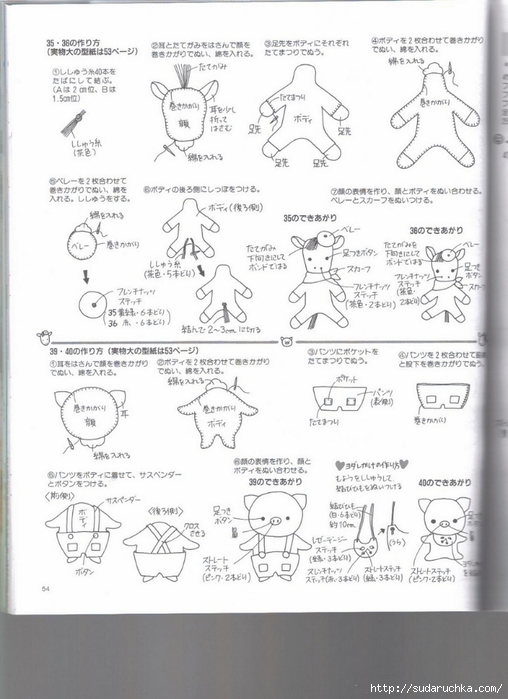 35・36の作り方
(実物大の型紙は53ページ)
①ししゅう糸40本を
たばにして結ぶ。
(Aは2cm位、Bは
1.5cm位)
ししゅう糸
(茶色)
②耳とたてがみをはさんで顔を
巻きかがりでぬい、綿を入れる。
たてがみ
巻きかがり
顔
耳を少し
折って
はさむ
綿を入れる
③足先をボディにそれぞれ
たてまつりでぬう。
たてまつり
ボディ
足先
足先
足先
④ボディを2枚合わせて巻きかが
りでぬい、綿を入れる。
綿を入れる
巻きかがり
⑤ベレーを2枚合わせて
巻きかがりでぬい、綿を
入れる。ししゅうをする。
綿を入れる
ベレー
巻きかがり
フレンチナッツ
ステッチ
⑥ボディの後ろ側にしっぽをつける。
ボディ(後ろ側)
ししゅう糸
(茶色・5本どり)
結んで2〜3cmに切る
⑦顔の表情を作り、顔とボディをぬい合わせる。
ベレーとスカーフをぬいつける。
35のできあがり
ベレー
たてがみを
下向きにして
ボンドではる
足つきボタン
スカーフ
フレンチナッツ
ステッチ
(茶色・2本どり)
36のできあがり
たてがみを
下向きにして
ボンドではる
ベレー
足つき
ボタン
スカーフ
フレンチナッツ
ステッチ
(茶色・
2本どり)
39・40の作り方(実物大の型紙は53ページ)
①耳をはさんで顔を巻きかがり
でぬい、綿を入れる。
巻きかがり
顔
耳
綿を入れる
②ボディを2枚合わせて巻きかがり
でぬい、綿を入れる。
綿を入れる
巻きかがり
ボディ
③パンツにポケットを
たてまつりでぬう。
ポケット
パンツ
(前側)
たてまつり
④パンツを2枚合わせて
と股下を巻きかがりでぬう。
巻きかがり
⑤パンツをボディに着せて、サスペンダー
とボタンをつける。
〈前側〉
サスペンダー
ボディ
ボタン
〈後ろ側〉
クロス
させる
⑥顔の表情を作り、顔と
ボディをぬい合わせる。
39のできあがり
足つき
ボタン
ストレート
ステッチ
(ピンク・2本どり)
♥ヨダレかけの作り方♥
もようをししゅうして
結びひもをぬいつける
結びひも
(白・6本どり)
約10cm
(うら)
レゼーデージー
ステッチ
フレンチナッツ
ストレートステッチ
40のできあがり
足つき
ボタン
ストレートステッチ
(ピンク・2本どり)
54
http://sudaruchka.com/